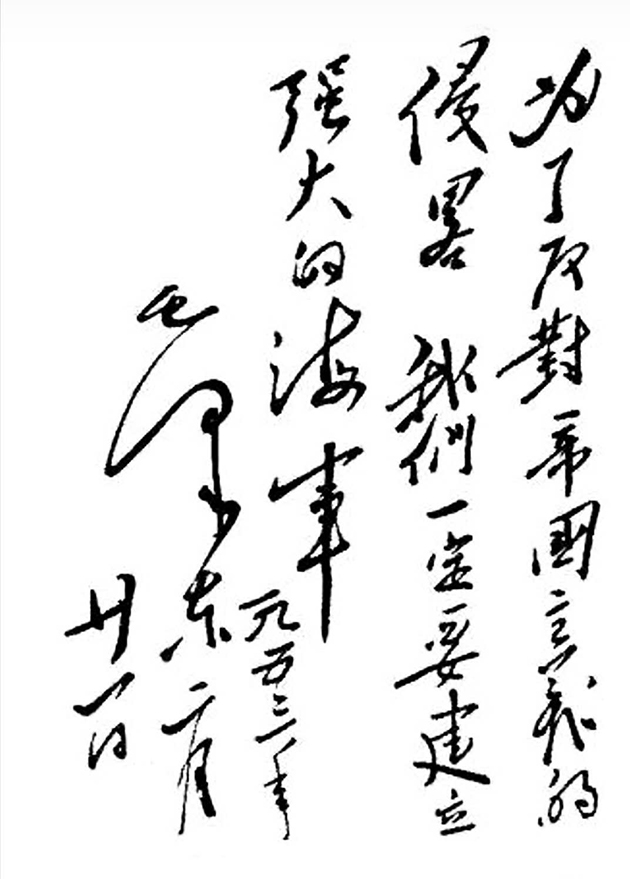 为了反對帝國主義的
侵畧 我們一定要建立
强大的海軍
毛泽东
一九五三年
二月
廿一日